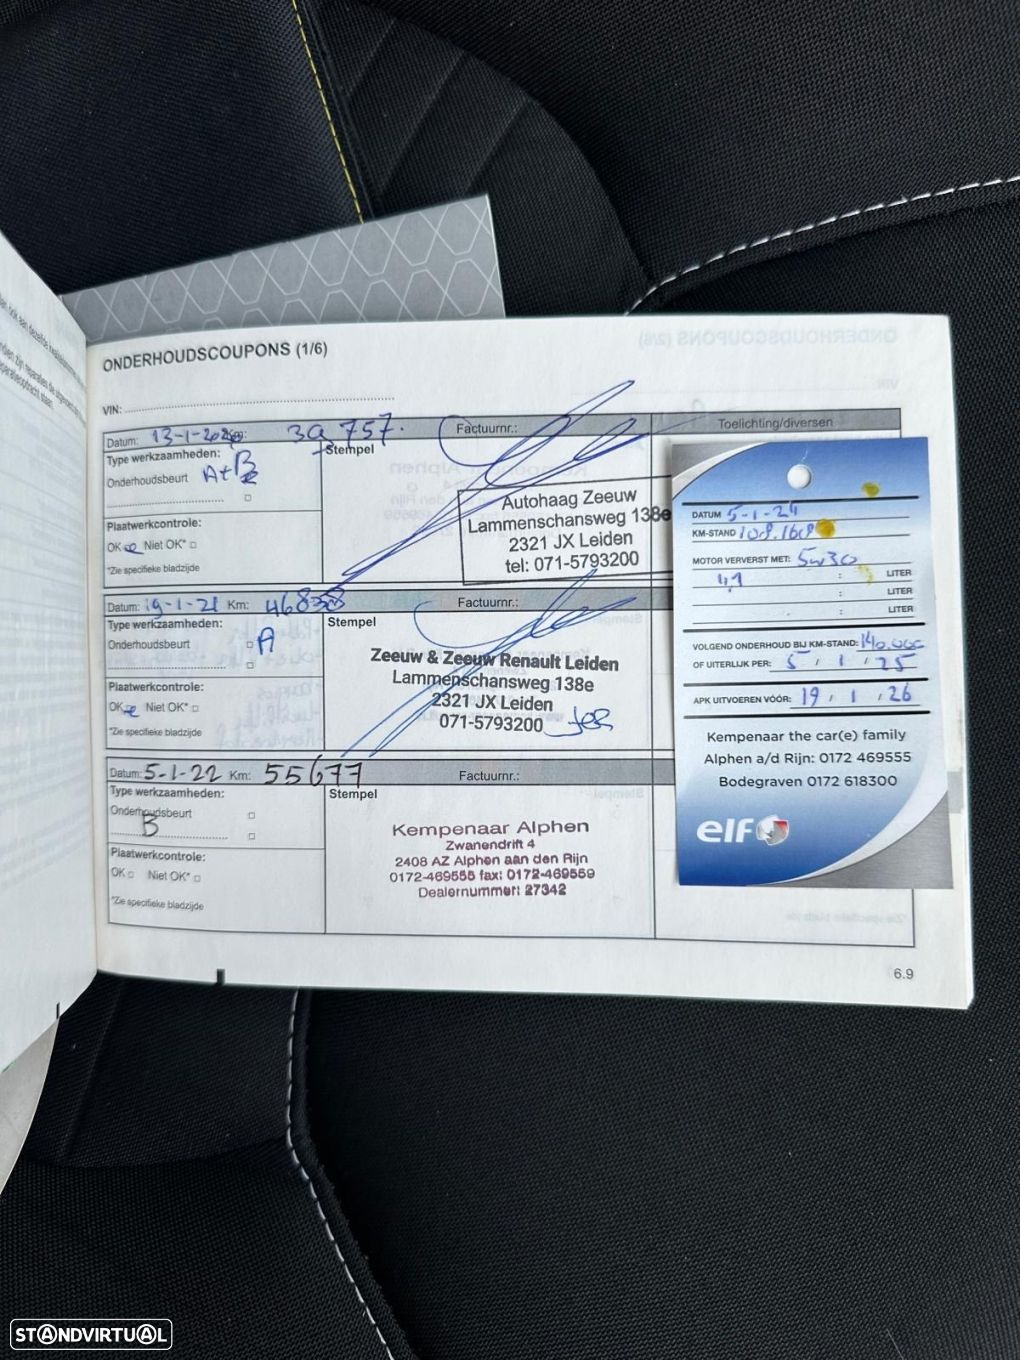 ONDERHOUDSCOUPONS (1/6)
VIN:
Datum: 13-1-2020 Km: 39 757. Factuurnr.: Toelichting/diversen
Type werkzaamheden: Stempel
Onderhoudsbeurt A+B
Plaatwerkcontrole:
OK Niet OK*
*Zie specifieke bladzijde
Autohaag Zeeuw
Lammenschansweg 138e
2321 JX Leiden
tel: 071-5793200
Datum: 19-1-21 Km: 46838 Factuurnr.:
Type werkzaamheden: Stempel
Onderhoudsbeurt A
Plaatwerkcontrole:
OK Niet OK*
*Zie specifieke bladzijde
Zeeuw & Zeeuw Renault Leiden
Lammenschansweg 138e
2321 JX Leiden
071-5793200
Datum: 5-1-22 Km: 55677 Factuurnr.:
Type werkzaamheden: Stempel
Onderhoudsbeurt
B
Plaatwerkcontrole:
OK Niet OK*
*Zie specifieke bladzijde
Kempenaar Alphen
Zwanendrift 4
2408 AZ Alphen aan den Rijn
0172-469555 fax: 0172-469559
Dealernummer: 27342
6.9
DATUM 5-1-24
KM-STAND
MOTOR VERVERST MET: 5w30
4,1 : LITER
: LITER
: LITER
VOLGEND ONDERHOUD BIJ KM-STAND: 140.000
OF UITERLIJK PER: 5 / 1 / 25
APK UITVOEREN VÓÓR: 19 / 1 / 26
Kempenaar the car(e) family
Alphen a/d Rijn: 0172 469555
Bodegraven 0172 618300
elf
STANDVIRTUAL